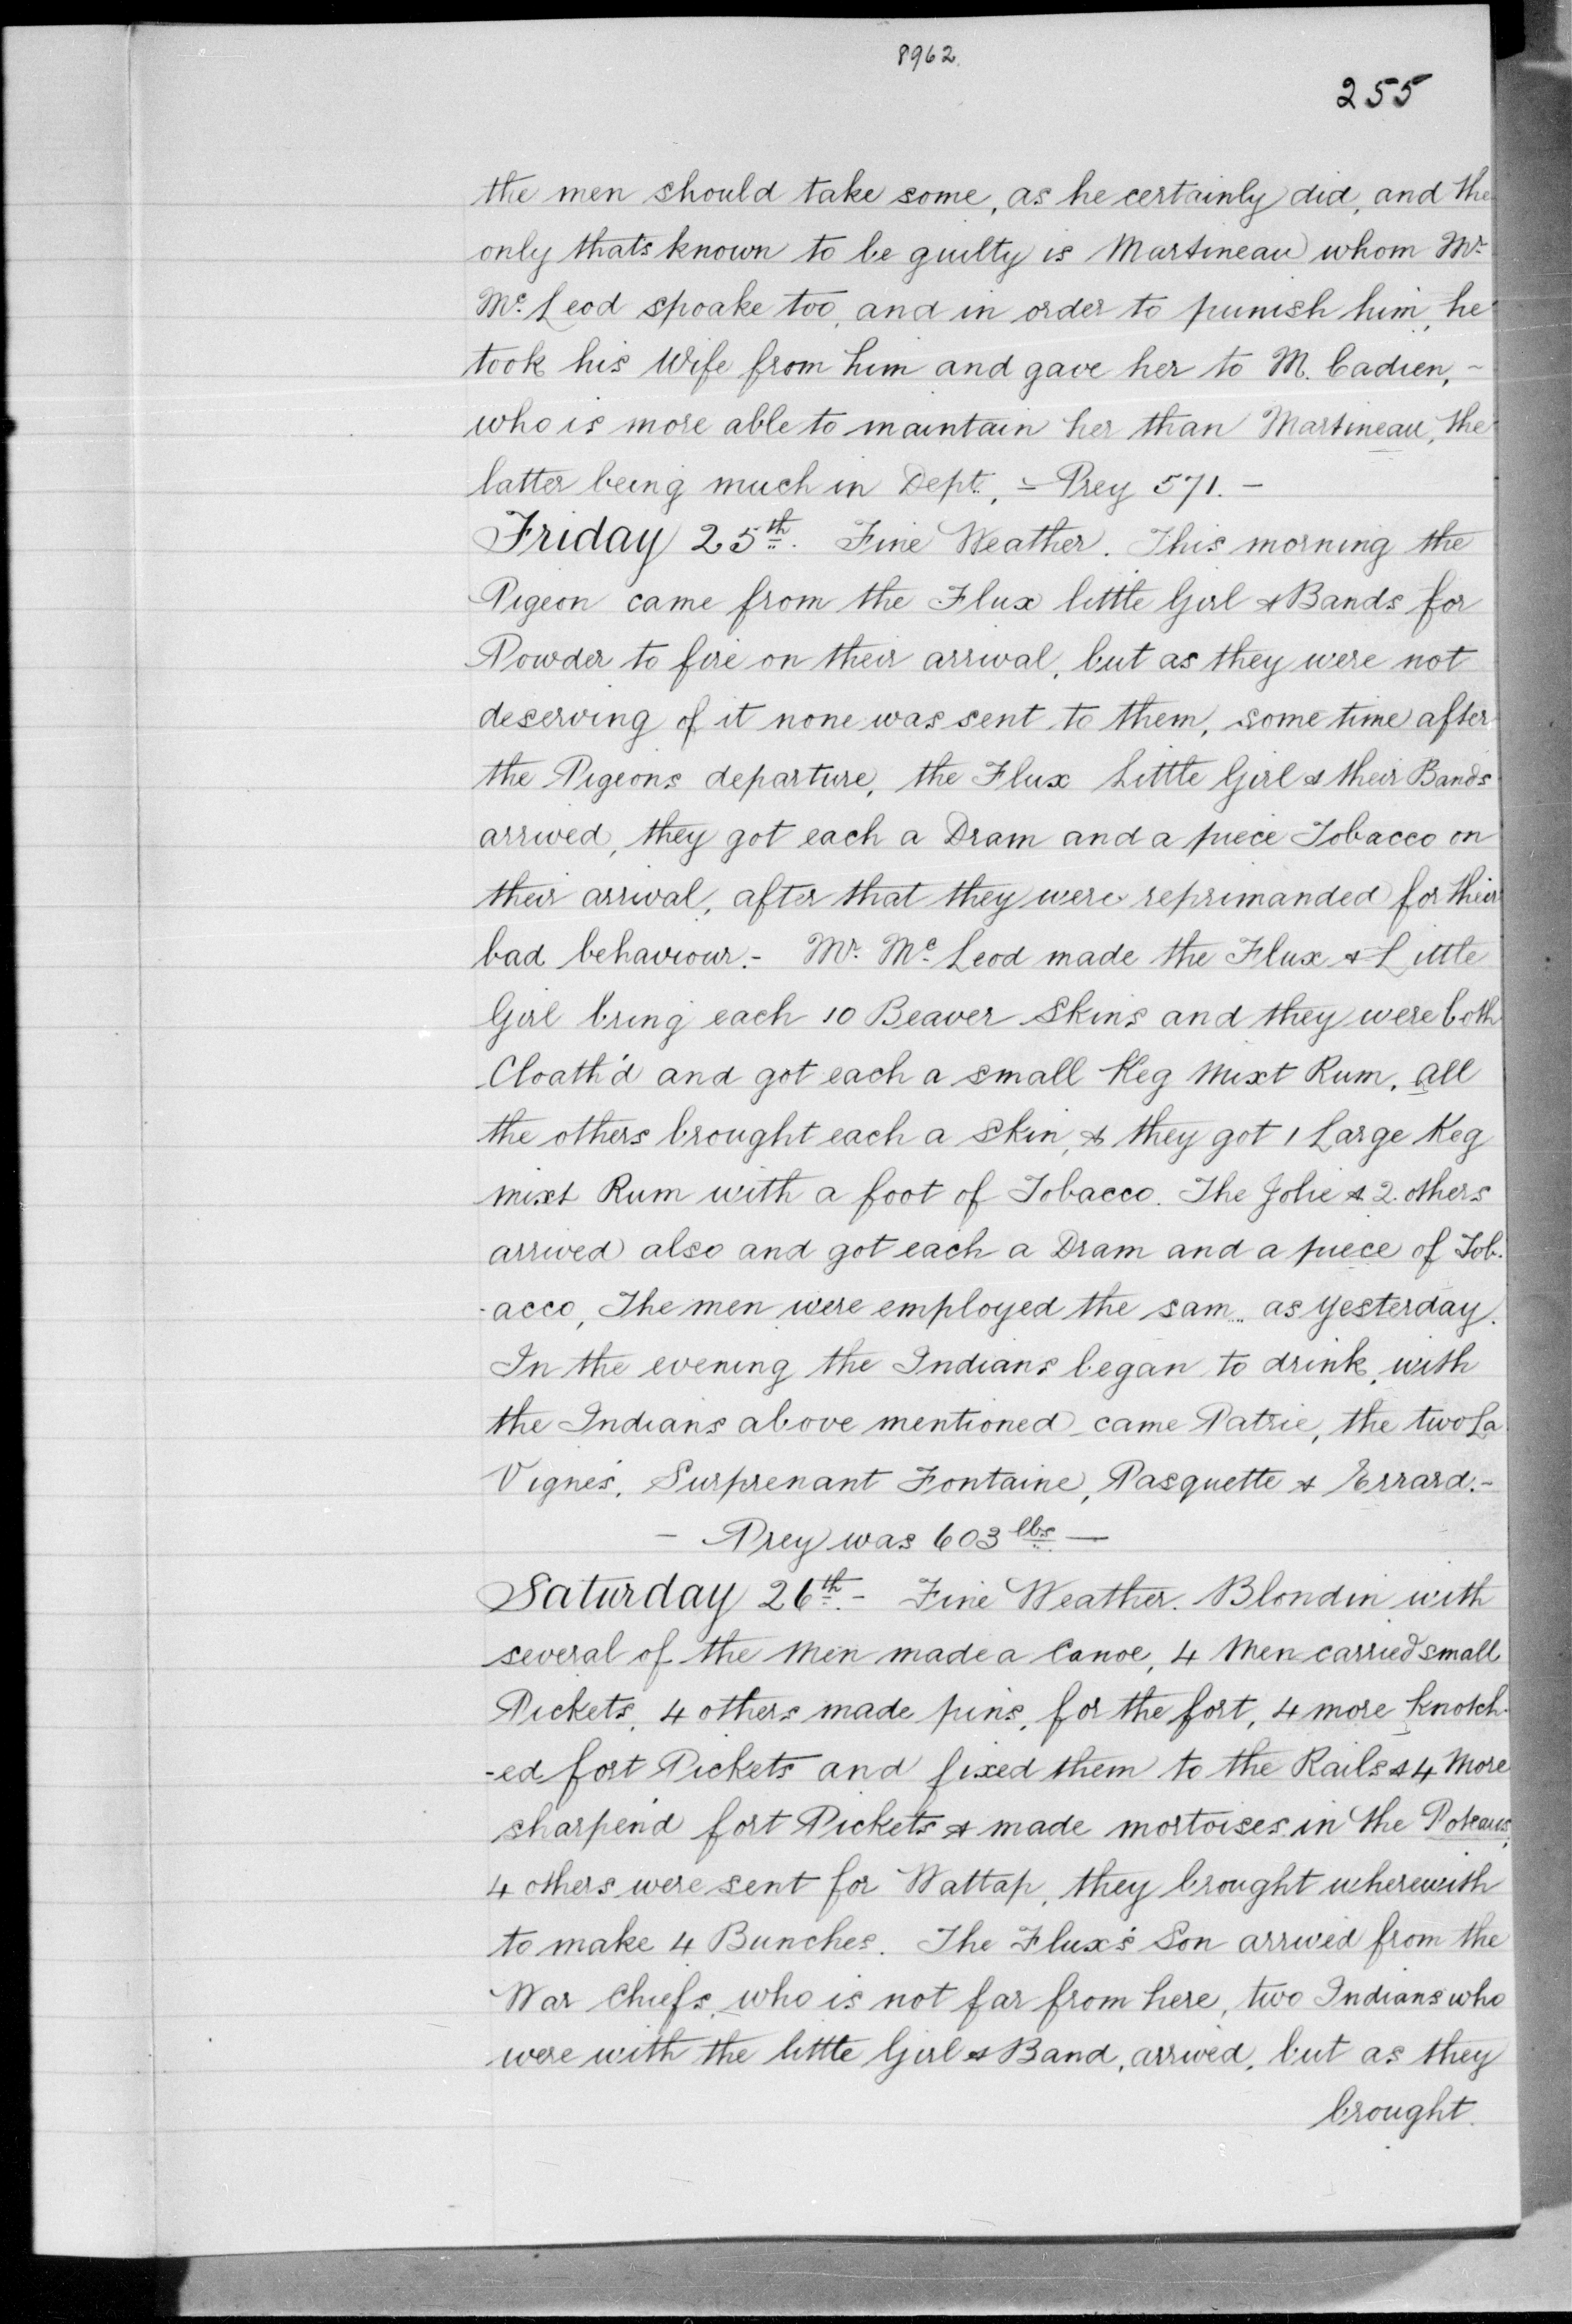 8962.
255
the men should take some, as he certainly did, and the
only thats known to be guilty is Martineau whom Mr.
Mc. Leod spoake too, and in order to punish him, he
took his Wife from him and gave her to M. Cadien, -
who is more able to maintain her than Martineau, the
latter being much in Dept., - Prey 571. -
Friday 25th. Fine Weather. This morning the
Pigeon came from the Flux little Girl & Bands for
Powder to fire on their arrival, but as they were not
deserving of it none was sent to them, some time after
the Pigeons departure, the Flux Little Girl & their Bands
arrived, they got each a Dram and a piece Tobacco on
their arrival, after that they were reprimanded for their
bad behaviour. - Mr. Mc. Leod made the Flux & Little
Girl bring each 10 Beaver Skins and they were both
Cloath'd and got each a small Keg Mixt Rum, all
the others brought each a Skin, & they got 1 Large Keg
mixt Rum with a foot of Tobacco. The Jolie & 2 others
arrived also and got each a Dram and a piece of Tob-
-acco, The men were employed the sam... as yesterday.
In the evening the Indians began to drink, with
the Indians above mentioned came Patrie, the two La
Vigne's, Surprenant Fontaine, Pasquette & Errard. -
- Prey was 603 lbs. -
Saturday 26th. - Fine Weather. Blondin with
several of the Men made a Canoe, 4 Men carried small
Pickets, 4 others made pins, for the fort, 4 more knotch-
-ed fort Pickets and fixed them to the Rails & 4 More
sharpen'd fort Pickets & made mortoises in the Poteaus,
4 others were sent for Wattap, they brought wherewith
to make 4 Bunches. The Flux's Son arrived from the
War Chiefs, who is not far from here, two Indians who
were with the little Girl & Band, arrived, but as they
brought.